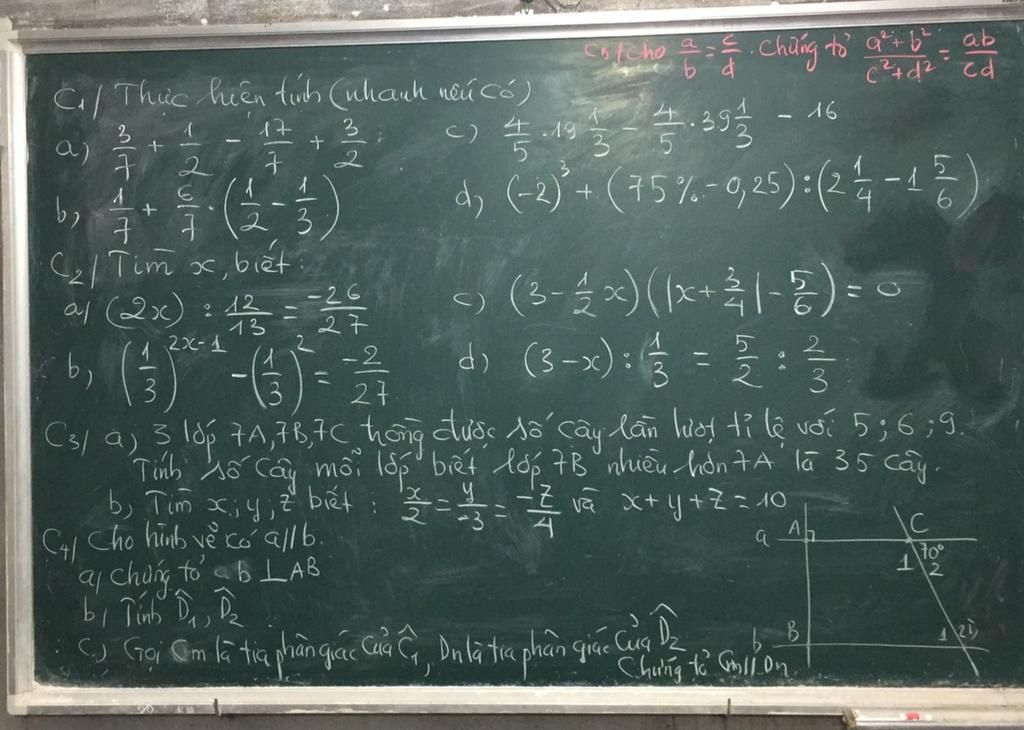 C5/ Cho a/b = c/d. Chứng tỏ (a² + b²)/(c² + d²) = ab/cd
C1/ Thực hiện tính (nhanh nếu có)
a) 3/7 + 1/2 - 17/7 + 3/2
c) 4/5 . 19 1/3 - 4/5 . 39 1/3 - 16
b) 1/7 + 6/7 . (1/2 - 1/3)
d) (-2)³ + (75% - 0,25) : (2 1/4 - 1 5/6)
C2/ Tìm x, biết:
a/ (2x) : 12/13 = -26/27
c) (3 - 1/2 x)(|x + 3/4| - 5/6) = 0
b) (1/3)^(2x-1) - (1/3)² = -2/27
d) (3 - x) : 1/3 = 5/2 : 2/3
C3/ a) 3 lớp 7A, 7B, 7C trồng được số cây lần lượt tỉ lệ với 5; 6; 9.
Tính số cây mỗi lớp biết lớp 7B nhiều hơn 7A là 35 cây.
b) Tìm x; y; z biết: x/2 = y/-3 = -z/4 và x + y + z = 10
C4/ Cho hình vẽ có a//b.
a/ Chứng tỏ b ⊥ AB
b/ Tính D̂1, D̂2
c) Gọi Cm là tia phân giác của Ĉ1, Dn là tia phân giác của D̂2
Chứng tỏ Cm//Dn
a A C
1 70° 2
b B 1 2 D